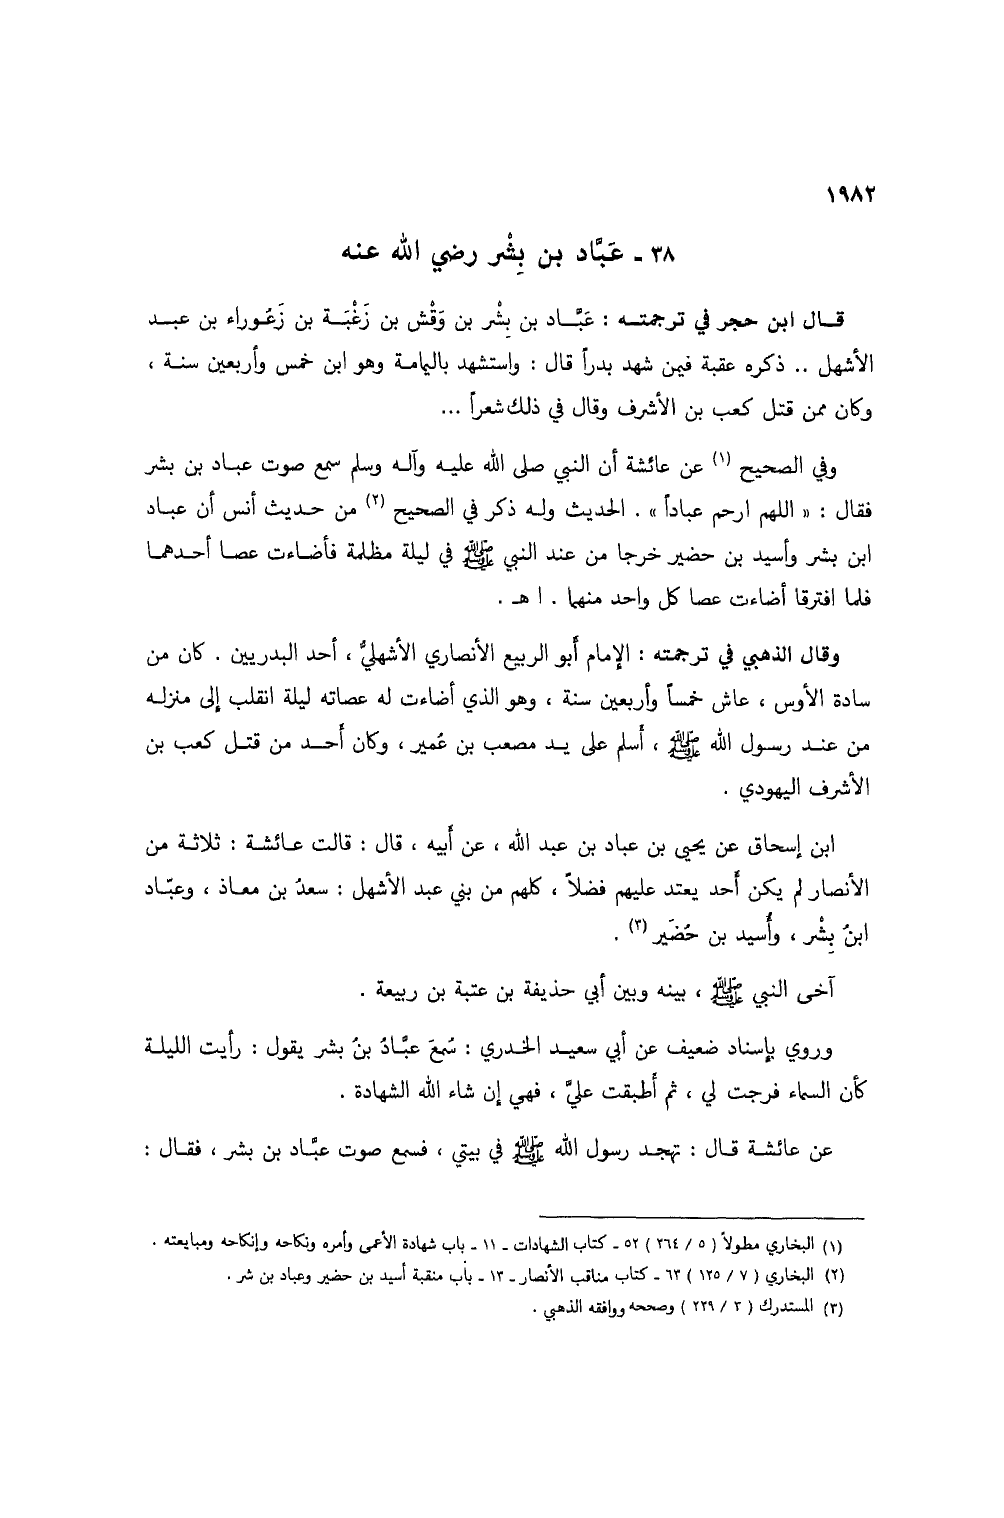 ١٩٨٢
٣٨ - عَبَّاد بن بِشْر رضي الله عنه
قال ابن حجر في ترجمته : عَبَّاد بن بِشْر بن وَقْش بن زَغْبَة بن زَعُوراء بن عبد
الأشهل .. ذكره عقبة فيمن شهد بدراً قال : واستشهد باليمامة وهو ابن خمس وأربعين سنة ،
وكان ممن قتل كعب بن الأشرف وقال في ذلك شعراً ...
وفي الصحيح (١) عن عائشة أن النبي صلى الله عليه وآله وسلم سمع صوت عباد بن بشر
فقال : « اللهم ارحم عباداً » . الحديث وله ذكر في الصحيح (٢) من حديث أنس أن عباد
ابن بشر وأسيد بن حضير خرجا من عند النبي ﷺ في ليلة مظلمة فأضاءت عصا أحدهما
فلما افترقا أضاءت عصا كل واحد منهما . ا هـ .
وقال الذهبي في ترجمته : الإمام أبو الربيع الأنصاري الأشهليُّ ، أحد البدريين . كان من
سادة الأوس ، عاش خمساً وأربعين سنة ، وهو الذي أضاءت له عصاته ليلة انقلب إلى منزله
من عند رسول الله ﷺ ، أَسلم على يد مصعب بن عُمير ، وكان أَحد من قتل كعب بن
الأشرف اليهودي .
ابن إسحاق عن يحيى بن عباد بن عبد الله ، عن أَبيه ، قال : قالت عائشة : ثلاثة من
الأنصار لم يكن أَحد يعتد عليهم فضلاً ، كلهم من بني عبد الأشهل : سعدُ بن معاذ ، وعبّاد
ابنُ بِشْر ، وأُسيد بن حُضَير (٣) .
آخى النبي ﷺ ، بينه وبين أبي حذيفة بن عتبة بن ربيعة .
وروي بإسناد ضعيف عن أبي سعيد الخدري : سُمعَ عبَّادُ بنُ بشر يقول : رأيت الليلة
كأن السماء فرجت لي ، ثم أَطبقت عليَّ ، فهي إن شاء الله الشهادة .
عن عائشة قال : تهجد رسول الله ﷺ في بيتي ، فسمع صوت عبَّاد بن بشر ، فقال :
(١) البخاري مطولاً ( ٥ / ٢٦٤ ) ٥٢ - كتاب الشهادات - ١١ - باب شهادة الأعمى وأمره ونكاحه وإنكاحه ومبايعته .
(٢) البخاري ( ٧ / ١٢٥ ) ٦٣ - كتاب مناقب الأنصار - ١٣ - باب منقبة أسيد بن حضير وعباد بن شر .
(٣) المستدرك ( ٣ / ٢٢٩ ) وصححه ووافقه الذهبي .